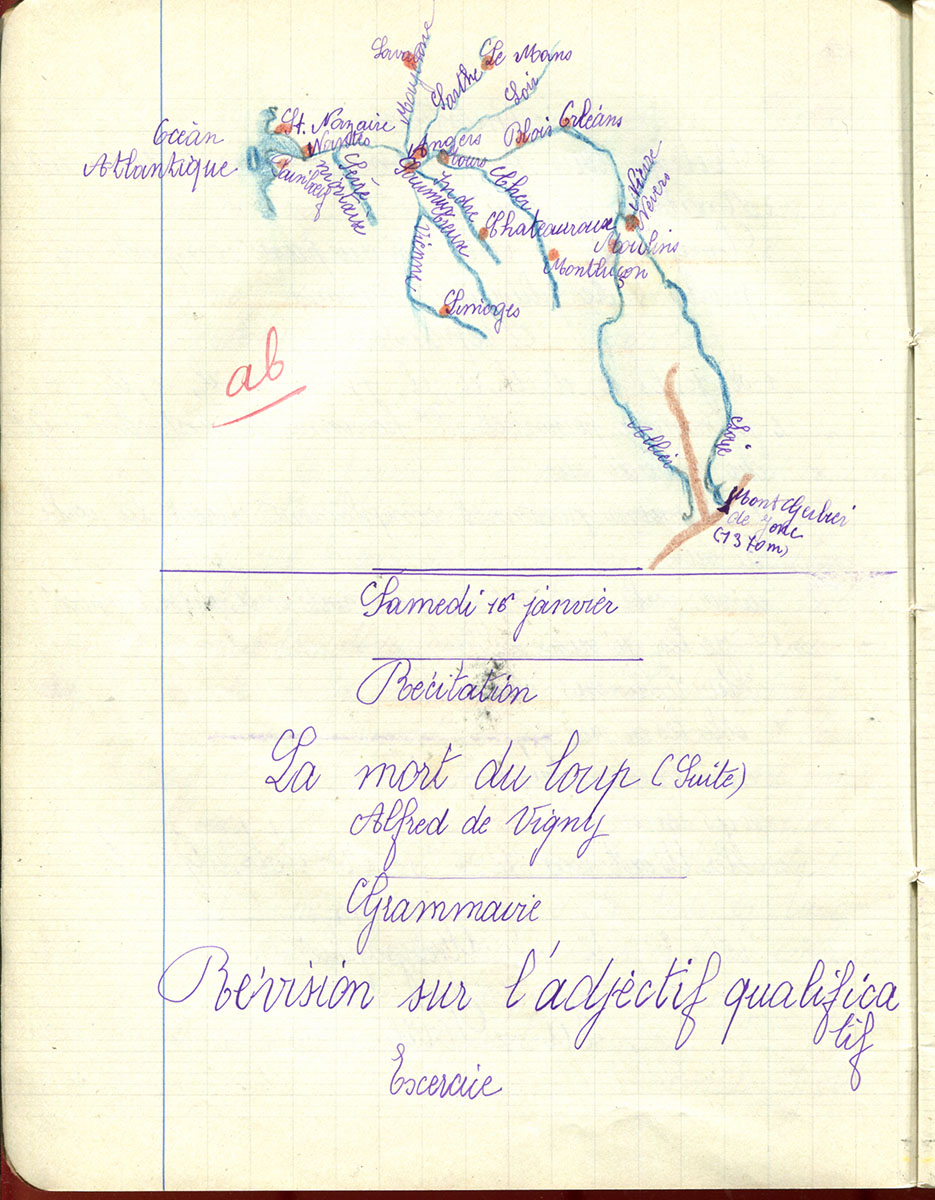 Laval
Mayenne
Sarthe
Le Mans
Loir
Océan
Atlantique
St. Nazaire
Nantes
Paimbœuf
Sèvre
nantaise
Angers
Saumur
Tours
Blois
Orléans
Nièvre
Nevers
Indre
Cher
Creuse
Vienne
Chateauroux
Moulins
Montluçon
Limoges
ab
Allier
Loire
Mont Gerbier
de Jonc
(1370m)
Samedi 16 janvier
Récitation
La mort du loup (Suite)
Alfred de Vigny
Grammaire
Révision sur l'adjectif qualifica
tif
Excercice